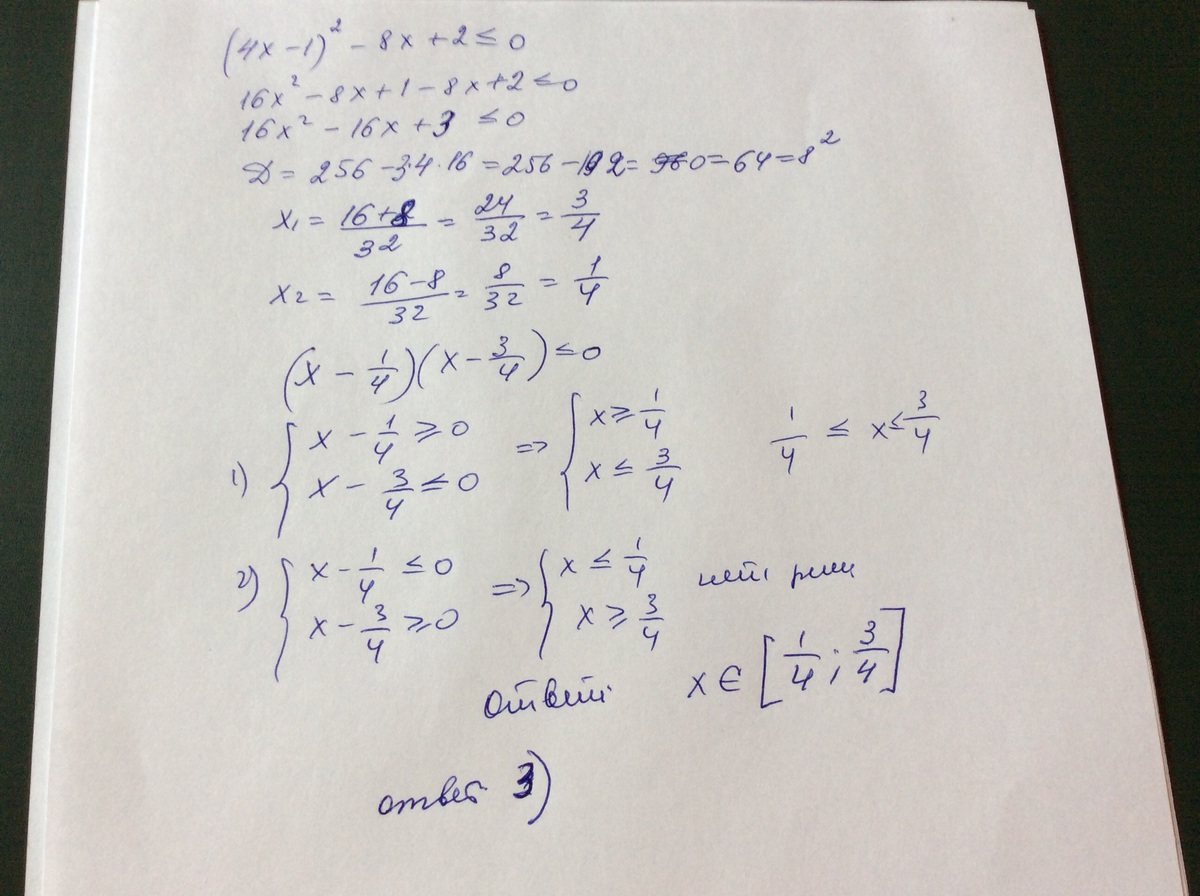 (4x-1)² - 8x + 2 ≤ 0
16x² - 8x + 1 - 8x + 2 ≤ 0
16x² - 16x + 3 ≤ 0
D = 256 - 3·4·16 = 256 - 192 = 0 = 64 = 8²
x₁ = (16+8)/32 = 24/32 = 3/4
x₂ = (16-8)/32 = 8/32 = 1/4
(x - 1/4)(x - 3/4) ≤ 0
1) { x - 1/4 ≥ 0 => { x ≥ 1/4 1/4 ≤ x ≤ 3/4
x - 3/4 ≤ 0 x ≤ 3/4
2) { x - 1/4 ≤ 0 => { x ≤ 1/4 нет реш
x - 3/4 ≥ 0 x ≥ 3/4
Ответ: x ∈ [1/4; 3/4]
ответ 3)